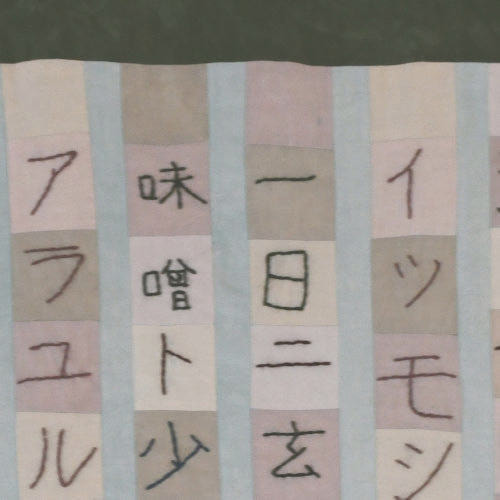 イツモシ
一日ニ玄
味噌ト少
アラユル